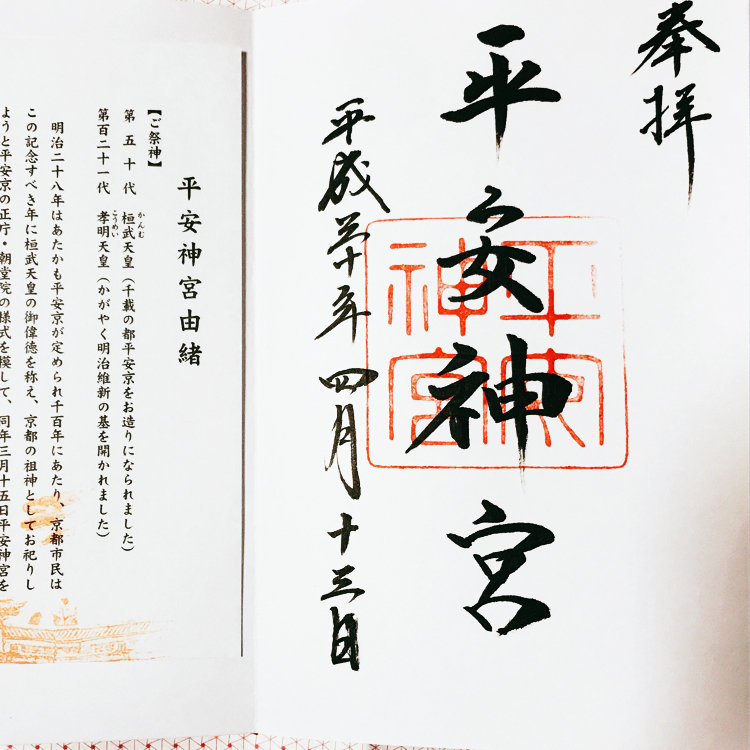 奉拝
平安神宮
平安神宮
平成三十年四月十三日
平安神宮由緒
【ご祭神】
第五十代 桓武天皇(千載の都平安京をお造りになられました)
かんむ
第百二十一代 孝明天皇(かがやく明治維新の基を開かれました)
こうめい
明治二十八年はあたかも平安京が定められ千百年にあたり、京都市民は
この記念すべき年に桓武天皇の御偉徳を称え、京都の祖神としてお祀りし
ようと平安京の正庁・朝堂院の様式を模して、同年三月十五日平安神宮を